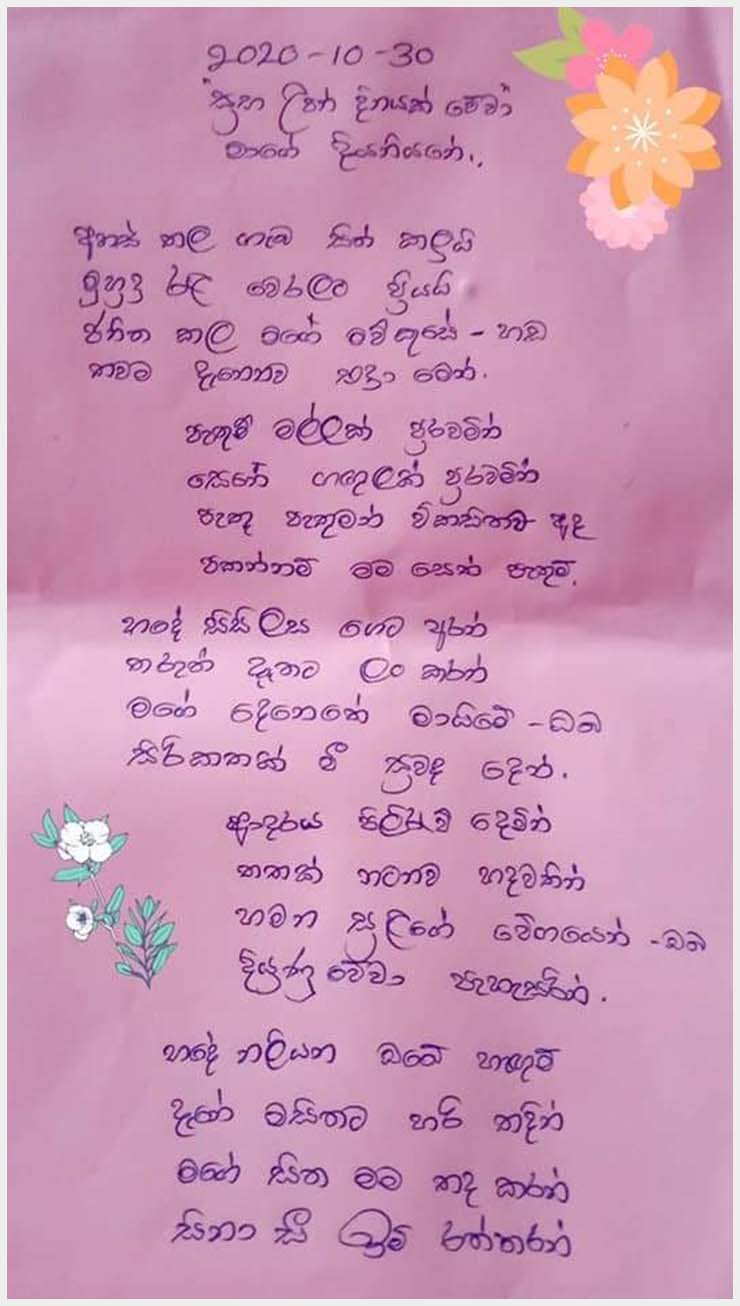 2020-10-30
"සුභ උපන් දිනයක් වේවා"
මාගේ දියණියනේ..
අහස් තල ගැබ සිත් කලුයි
මුහුදු රළ වෙරලට ප්‍රියයි
ජනිත කල මගේ මව් කුසේ - හඬ
තවම දැනෙනව හදා මෙන්.
පැතුම් මල්ලක් පුරවමින්
සෙනේ ගඟුලක් පුරවමින්
පැතූ පැතුමන් විකසිතව අද
පතන්නම් මම සෙත් පැතුම්.
හදේ සිසිලස ගෙට අරන්
තරුත් දෑතට ලං කරන්
මගේ දෙනෙතේ මායිමේ - ඔබ
සිරිකතක් මී සුවඳ දෙන්.
ආදරය පිලිසව් දෙමින්
තතක් නටනව හදවතින්
හමන සුළගේ වේගයෙන් - ඔබ
දියුණු වේවා පැහැසරින්.
හදේ නලියන ඔබේ හැඟුම්
දැනේ මසිතට හරි තදින්
මගේ සිත මම තද කරන්
සිනා සී ඉමි රත්තරන්